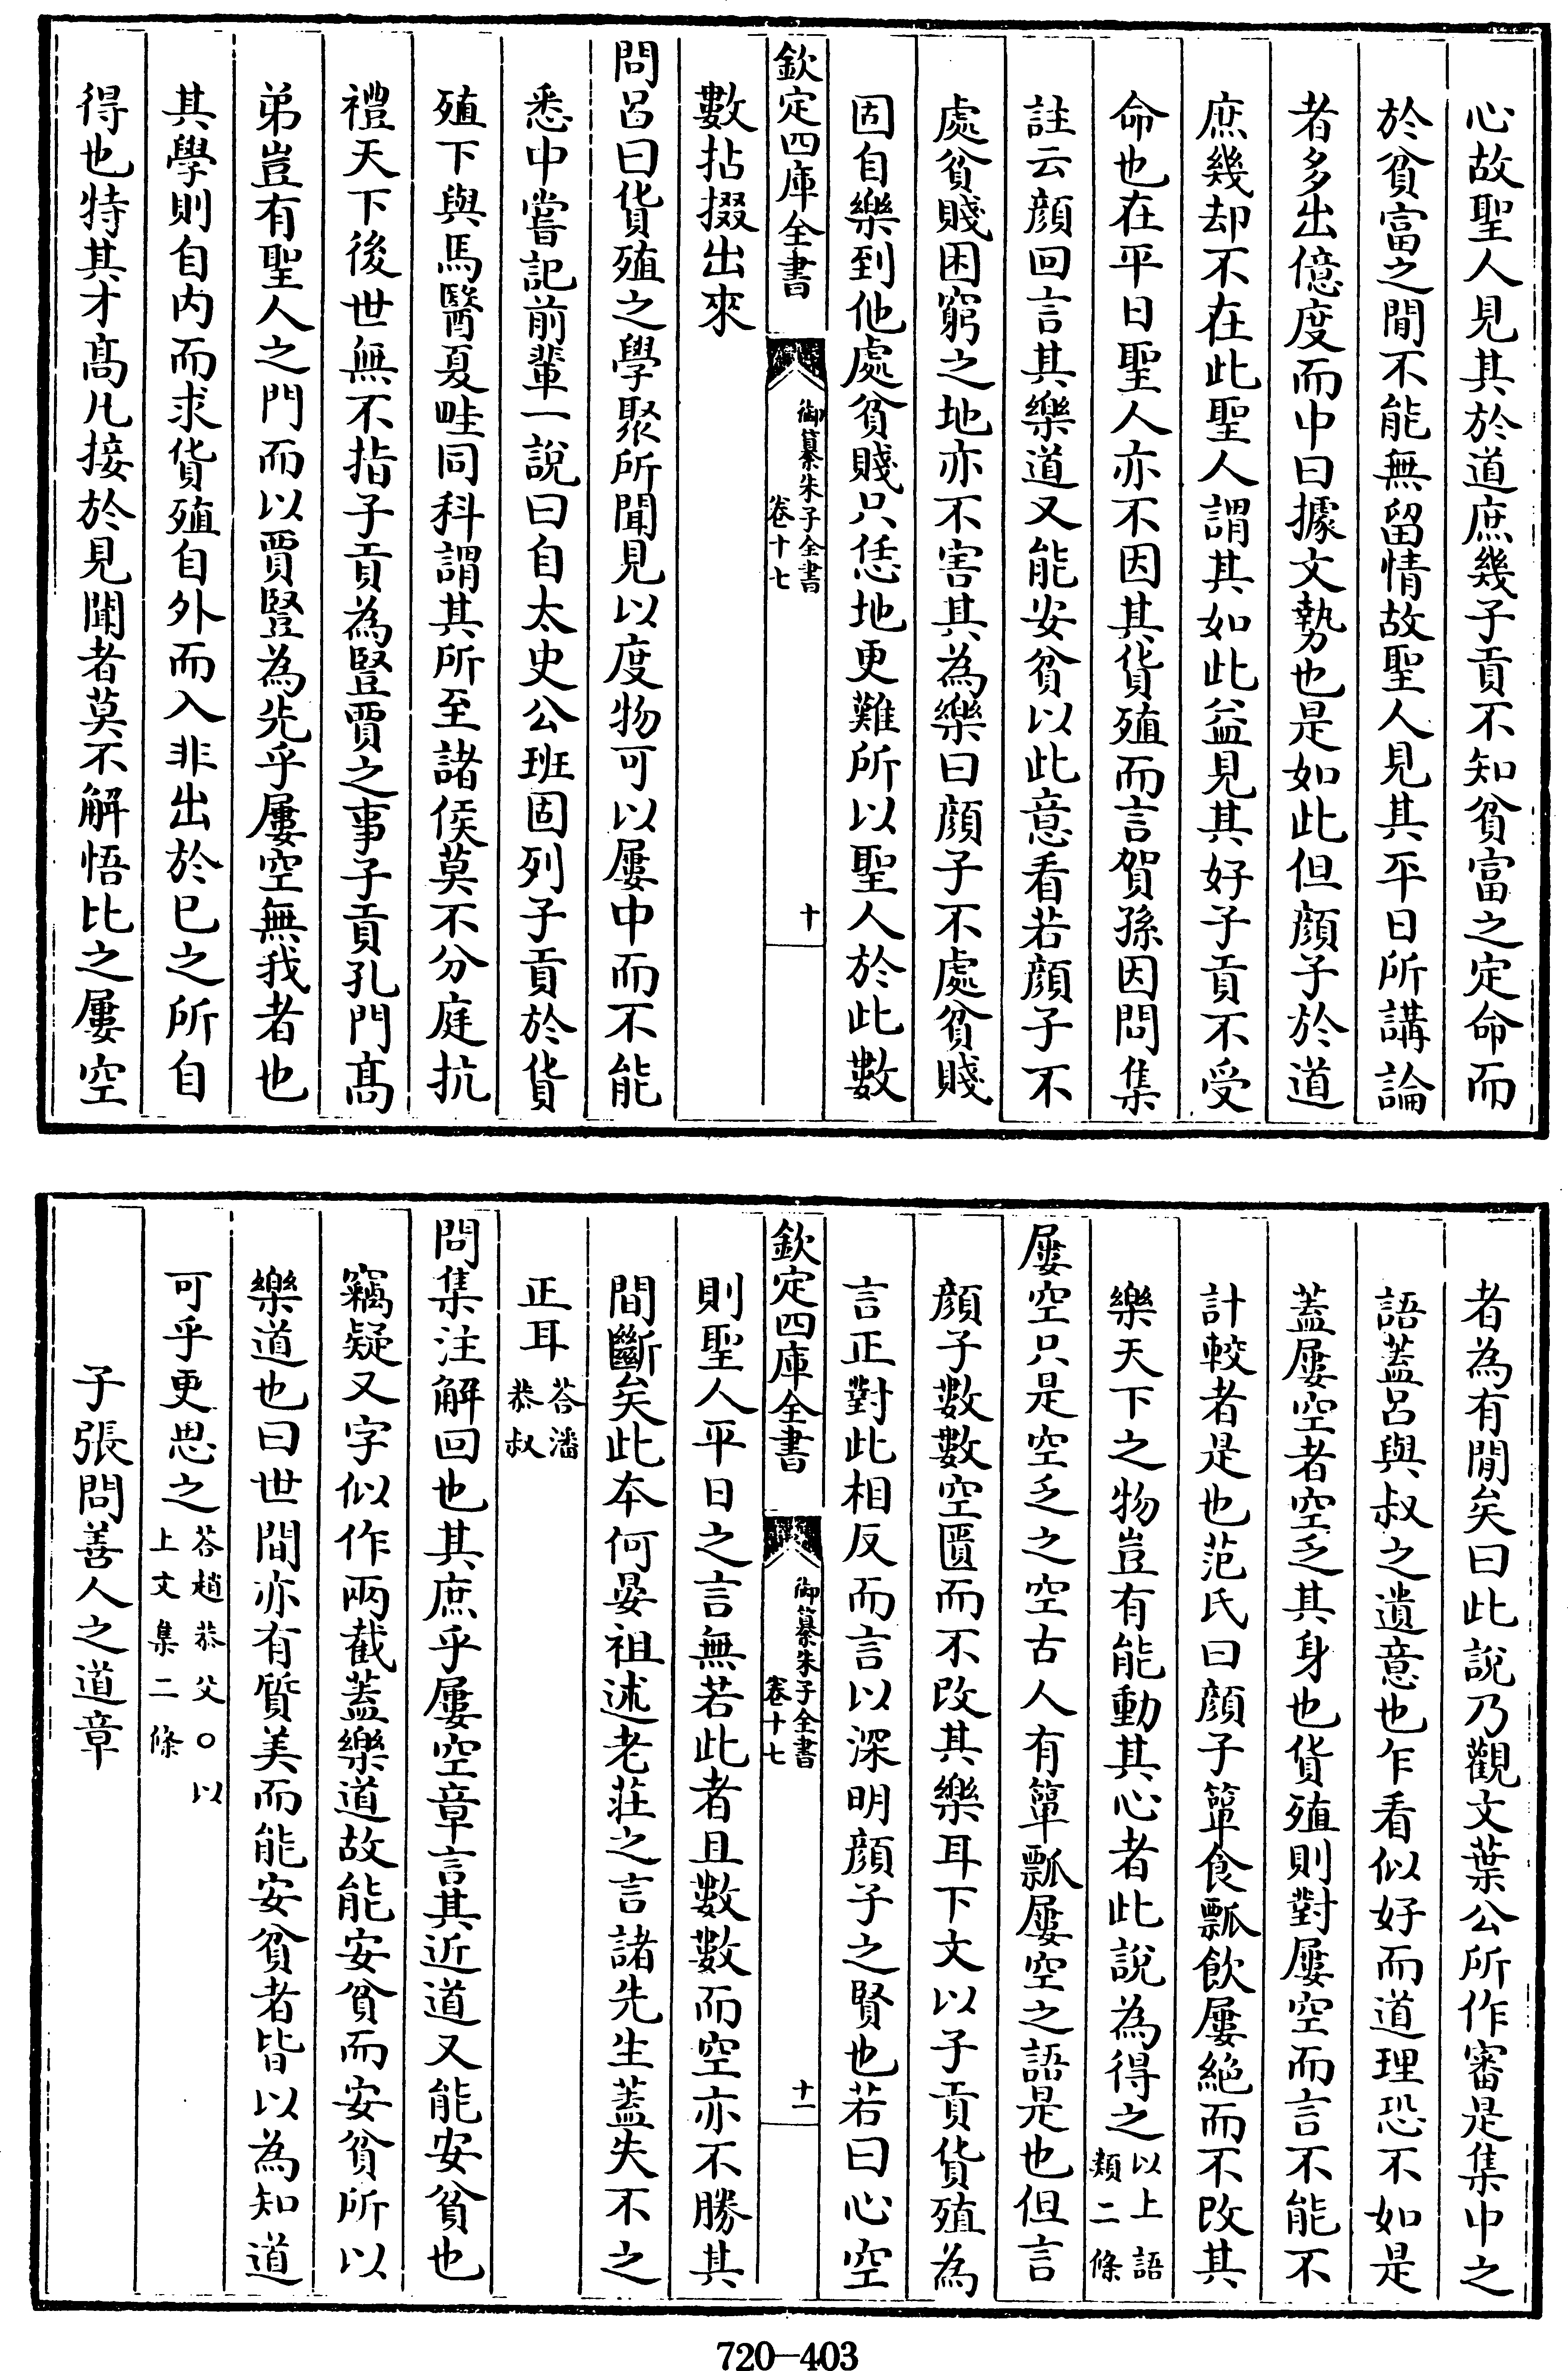 心故聖人見其於道庶幾子貢不知貧富之定命而
於貧富之閒不能無留情故聖人見其平日所講論
者多出億度而中曰據文勢也是如此但顔子於道
庶幾却不在此聖人謂其如此益見其好子貢不受
命也在平日聖人亦不因其貨殖而言賀孫因問集
註云顔回言其樂道又能安貧以此意看若顔子不
處貧賤困窮之地亦不害其為樂曰顔子不處貧賤
固自樂到他處貧賤只恁地更難所以聖人於此數
欽定四庫全書
御纂朱子全書
卷十七
十
數拈掇出來
問呂曰貨殖之學聚所聞見以度物可以屢中而不能
悉中嘗記前輩一說曰自太史公班固列子貢於貨
殖下與馬醫夏畦同科謂其所至諸侯莫不分庭抗
禮天下後世無不指子貢為豎賈之事子貢孔門髙
弟豈有聖人之門而以賈豎為先乎屢空無我者也
其學則自内而求貨殖自外而入非出於已之所自
得也特其才髙凡接於見聞者莫不解悟比之屢空
者為有閒矣曰此說乃觀文葉公所作審是集中之
語蓋呂與叔之遺意也乍看似好而道理恐不如是
蓋屢空者空乏其身也貨殖則對屢空而言不能不
計較者是也范氏曰顔子簞食瓢飲屢絶而不改其
樂天下之物豈有能動其心者此說為得之以上語
類二條
屢空只是空乏之空古人有簞瓢屢空之語是也但言
顔子數數空匱而不改其樂耳下文以子貢貨殖為
言正對此相反而言以深明顔子之賢也若曰心空
欽定四庫全書
御纂朱子全書
卷十七
十一
則聖人平日之言無若此者且數數而空亦不勝其
間斷矣此本何晏祖述老莊之言諸先生蓋失不之
正耳荅潘
恭叔
問集注解回也其庶乎屢空章言其近道又能安貧也
竊疑又字似作兩截蓋樂道故能安貧而安貧所以
樂道也曰世間亦有質美而能安貧者皆以為知道
可乎更思之荅趙恭父○以
上文集二條
子張問善人之道章
720-403